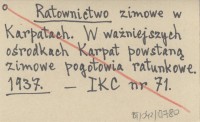 Ratownictwo zimowe w
Karpatach. W ważniejszych
ośrodkach Karpat powstaną
zimowe pogotowia ratunkowe.
1937. — IKC nr 71.